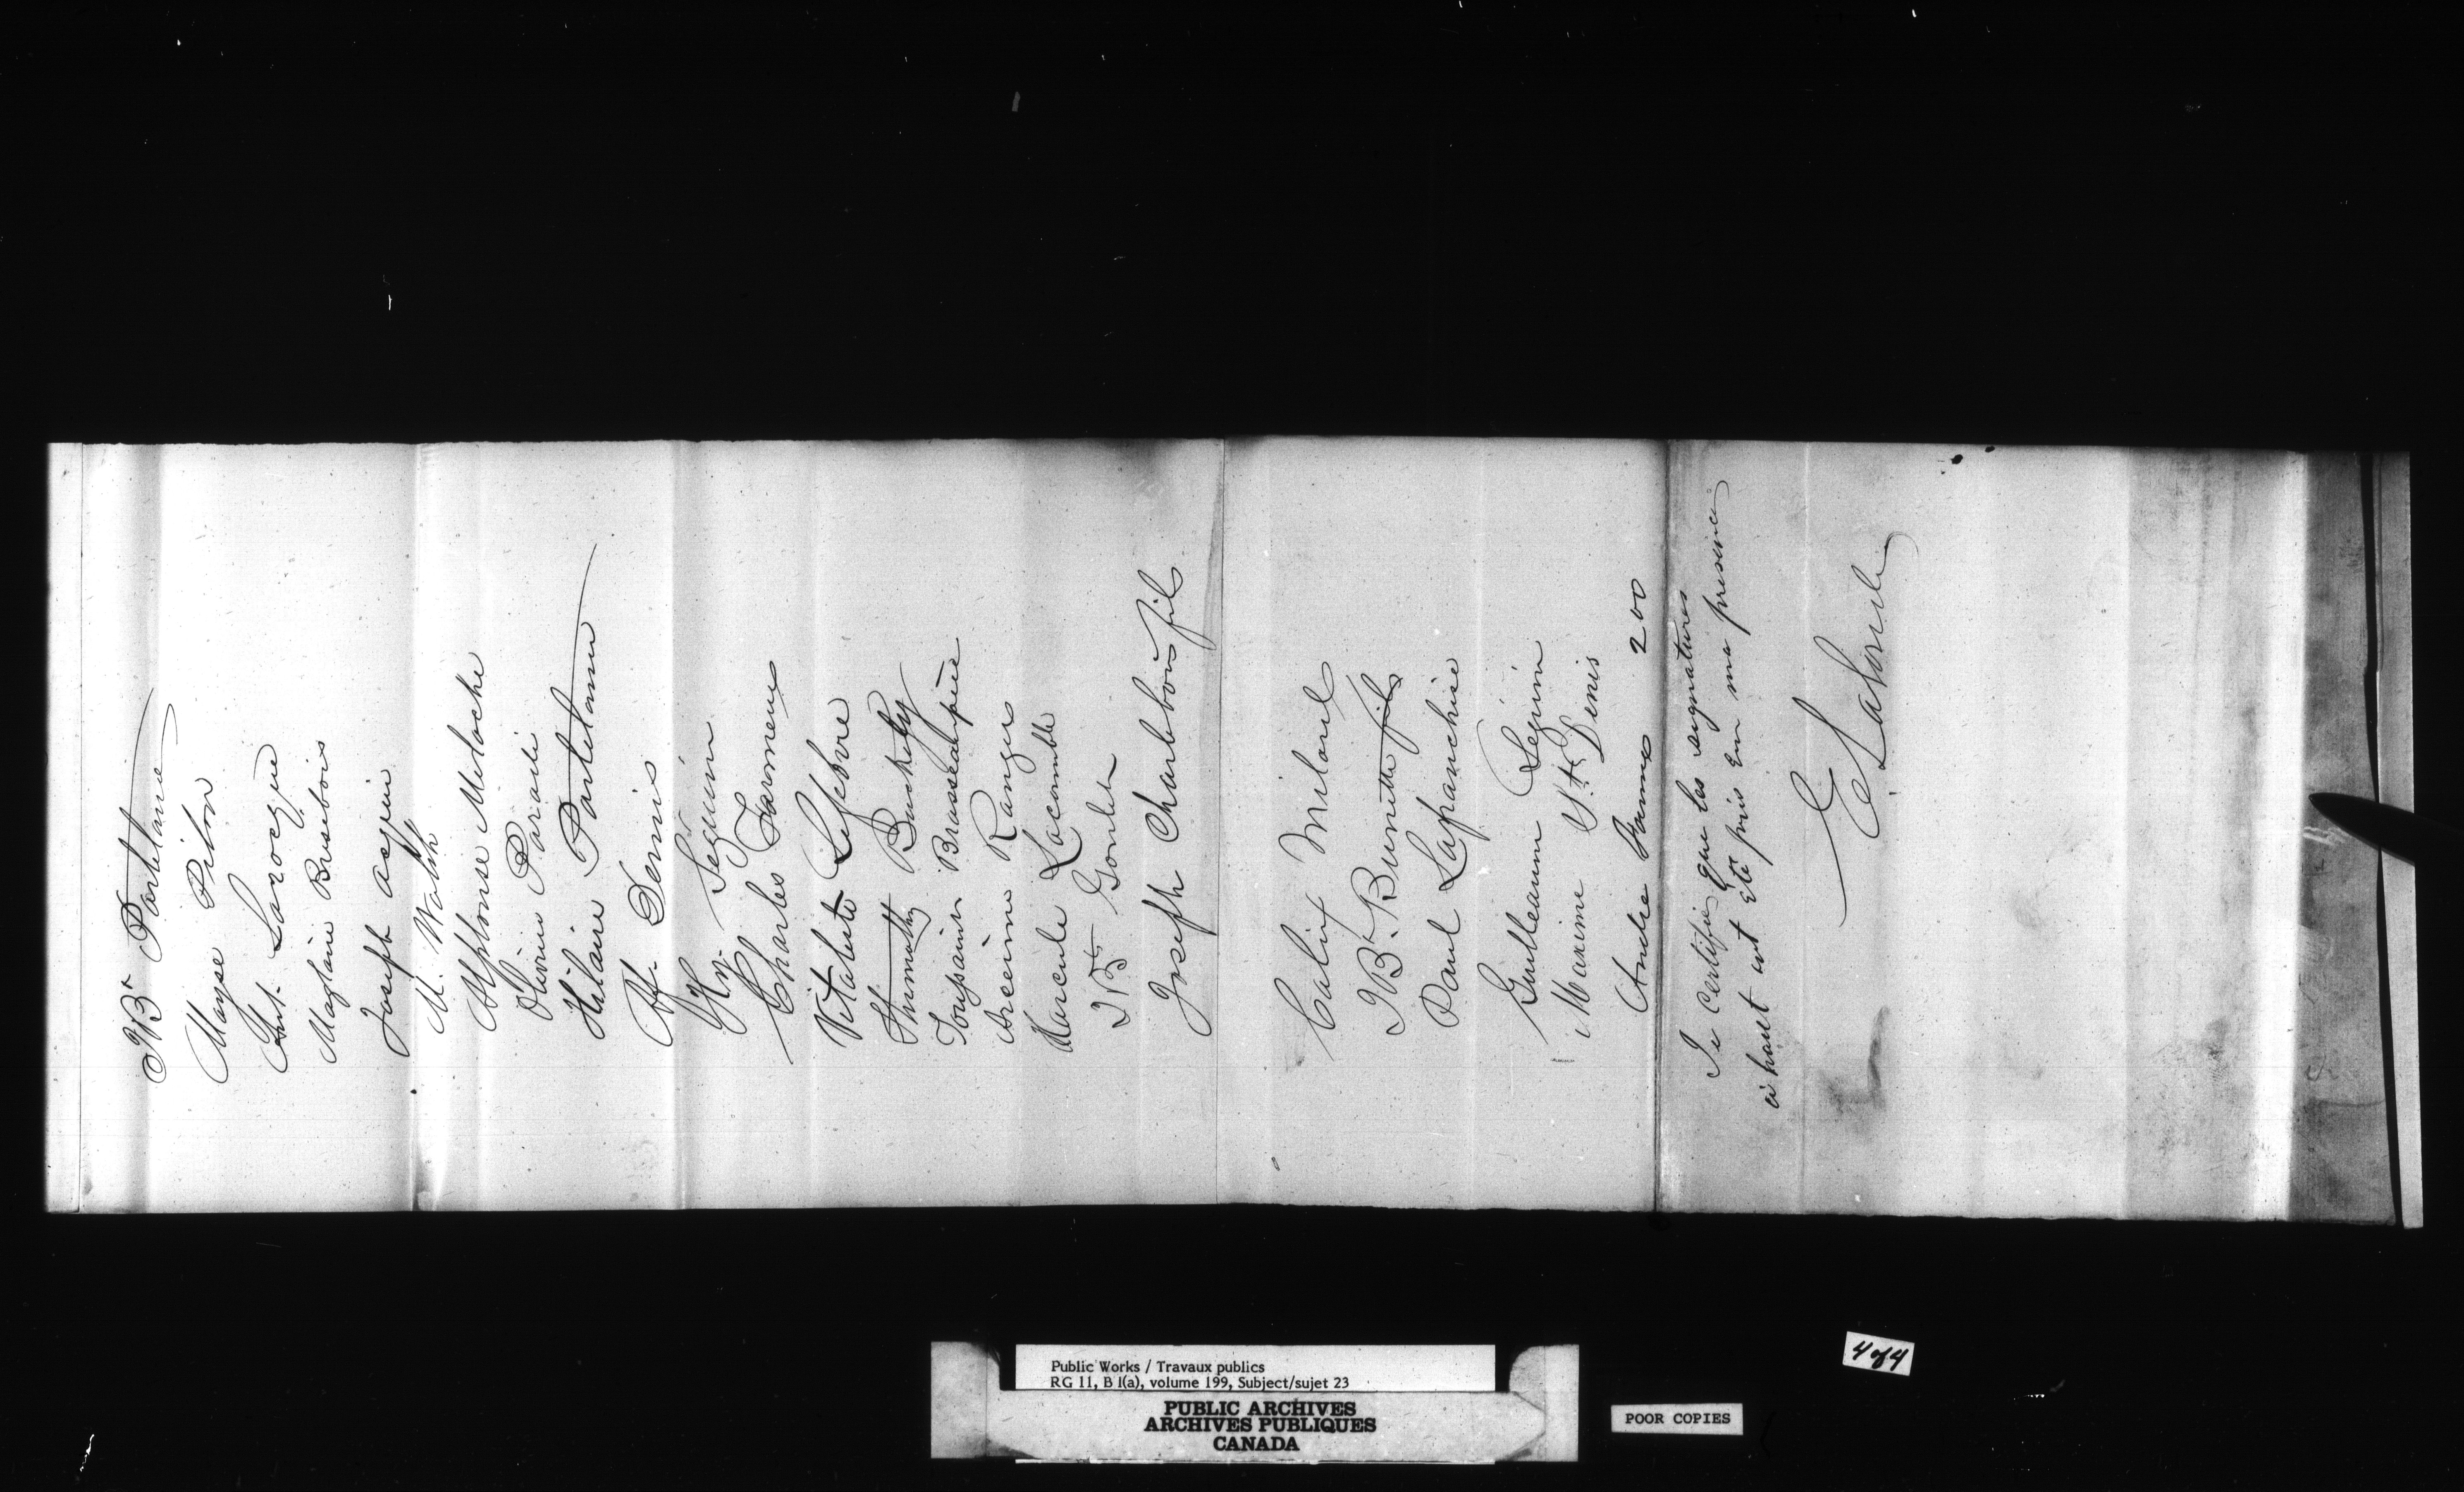 JBt Partelanee
Moyse Pilon
Ant. Larocque
Magloire Brisebois
Joseph asgiuin
M. Walsh
Alphonse Meloche
Olivier Parail
Hilaire Partelanee
Af. Denis
Hy. Seguin
Charles
Vitalute Lefebvre
Thimothy Buckely
Toussaint Brasseadr père
Arceine Ranger
Harcule Lacomble
JBt Goulet
Joseph Charlebois fils
Calix Milard
JBt. Brunette fils
Paul Lafranchise
Guilleaume Legiuin
Maxime St. Denis
Andre 200
Je certifie que les signatures
ci haut ont eté pris en ma presence
Public Works / Travaux publics
RG 11, B 1(a), volume 199, Subject/sujet 23
PUBLIC ARCHIVES
ARCHIVES PUBLIQUES
CANADA
POOR COPIES
4 of 4